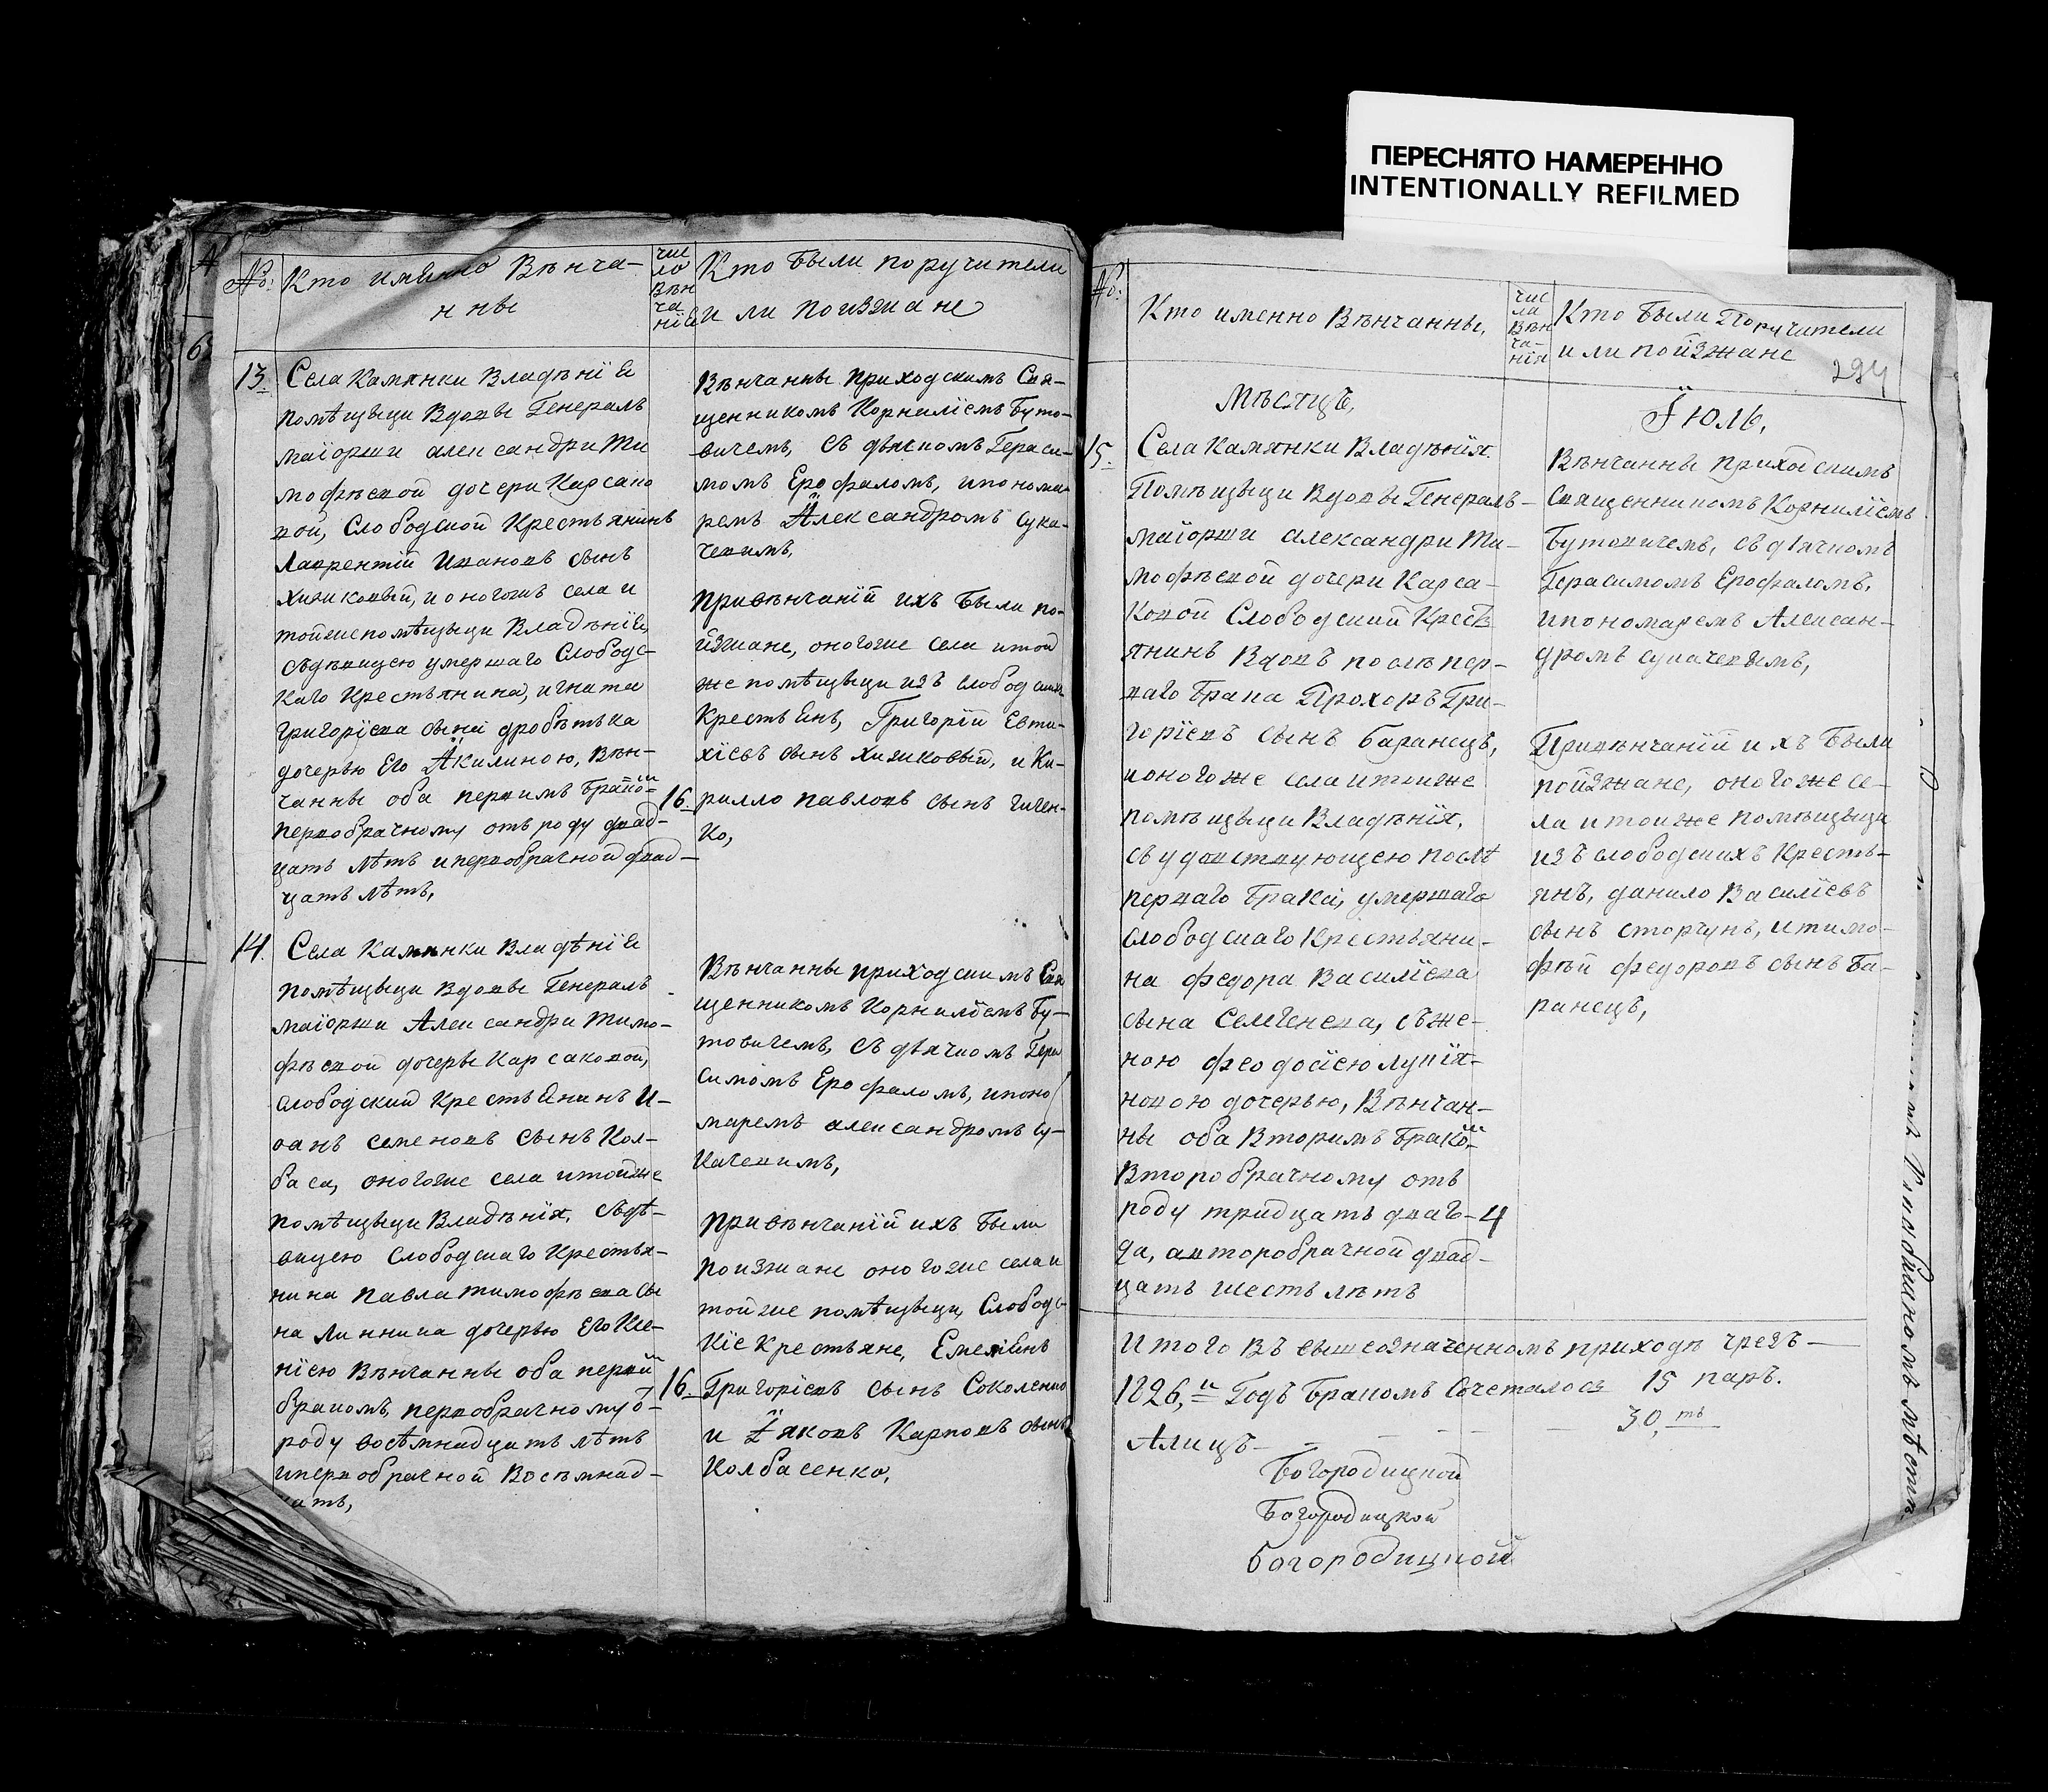 ПЕРЕСНЯТО НАМЕРЕННО
INTENTIONALLY REFILMED
№:
Кто имѣнно Вѣнча-
нны
чис
ло
Вѣн
ча
нїе
Кто были поручители
и ли поизжане
13.
Села Камянки Владѣнїе
помѣщыци Вдовы Генералъ
маїорши александри Ти
мофѣевой дочери Карсако
вой, Слободской Крестьянинъ
Лаврентїй Ивановъ сынъ
Хижиковый, и оногожъ села и
тойже помѣщыци Владѣнїе,
съдѣвицею умершаго Слободс-
Каго Крестьянина, игната
Григорїева сына дробѣтька
дочерью Его Акилиною, Вѣн-
чанны оба первимъ бракомъ
первобрачному отъ роду двад-
цать лѣтъ и первобрачной двад-
цать лѣтъ,
16.
Вѣнчанны приходскимъ Свя-
щенникомъ Корнилїемъ Буто-
вичемъ, съ дячкомъ Гераси-
момъ Ерофаломъ, ипонома-
ремъ Александромъ Сука-
чевимъ,
Привѣнчанїй ихъ были по-
йзжане, оногоже села итой
же помѣщыци изъ слободских
Крестьенъ, Григорїй Евти-
хїевъ сынъ Хижиковый, и Ки-
рилло павловъ сынъ гичен-
ко,
14.
Села Камянки Владѣнїе
помѣщыци Вдовы Генералъ
маїорши Александри Тимо-
фѣевой дочеры Карсаковой,
слободский крестьенинъ И-
оанъ семеновъ сынъ Кол-
баса, оногоже села итойже
помѣщыци Владѣнїя, съдѣ-
вицею Слободскаго Крестья-
нина Павла тимофѣева сы
на Линника дочерью Его Ксе-
нїею Вѣнчанны оба первим
бракомъ, первобрачному о-
роду восѣмнадцать лѣтъ
ипервобрачной Восѣмнад-
цать,
16.
Вѣнчанны приходскимъ Свя
щенникомъ Корнилїемъ Бу-
товичемъ, съ дячкомъ Гера
симомъ Ерофаломъ, ипоно
маремъ александромъ Су-
качевимъ,
Привѣнчанїй ихъ были
поизжане оногоже села и
тойже помѣщыци, Слободс-
кїе Крестьяне, Емелїенъ
Григорїевъ сынъ Соколенко
и Яковъ Карповъ сынъ
Колбасенко,
№:
Кто именно Вѣнчанны,
чис
ла
Вѣн
ча-
нїя
Кто были Поручители
и ли пойзжане
294
Мѣсяцъ,
Їюль,
15.
Села Камянки Владѣнїя
Помѣщыци Вдовы Генералъ-
маїорши александри Ти-
мофѣевой дочери Карса-
ковой Слободский Кресть
янинъ Вдовъ послѣ пер-
ваго брака Прохоръ Гри-
горїевъ сынъ баранецъ,
и оногоже села итоиже
помѣщыци Владѣнїя,
съ удовствующею послѣ
перваго брака, умершаго
слободскаго Крестьяни-
на федора Василїева
сына Семенева, съже-
ною феодосїею лукїя-
новою дочерью, Вѣнчан-
ны оба Вторимъ бракомъ
Второбрачному отъ
роду тридцать два го-
да, а второбрачной двад-
цать шесть лѣтъ
4
Вѣнчанны приходскимъ
Священникомъ Корнилїемъ
Бутовичемъ, съ дячкомъ
Герасимомъ Ерофаломъ,
ипономаремъ Алексан-
дромъ сукачевимъ,
Привѣнчанїй ихъ были
пойзжане, оногоже се-
ла итоиже помѣщыци
изъ слободскихъ Кресть-
янъ, данило Василїевъ
сынъ сторчунъ, и тимо-
фѣй федоровъ сынъ Ба-
ранецъ,
Итого Въ вышеозначенномъ приходѣ чрезъ
1826,й Годъ бракомъ сочеталось 15 паръ.
Алицъ- - - - 30,ть
Богородицкой
Богородицкой
богородицкой